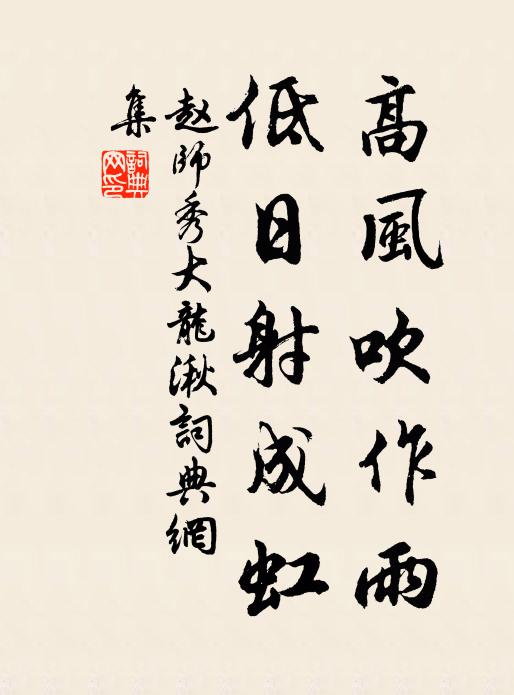 高風吹作雨
低日射成虹
赵師秀大龍湫詞典網
集
詞典网印